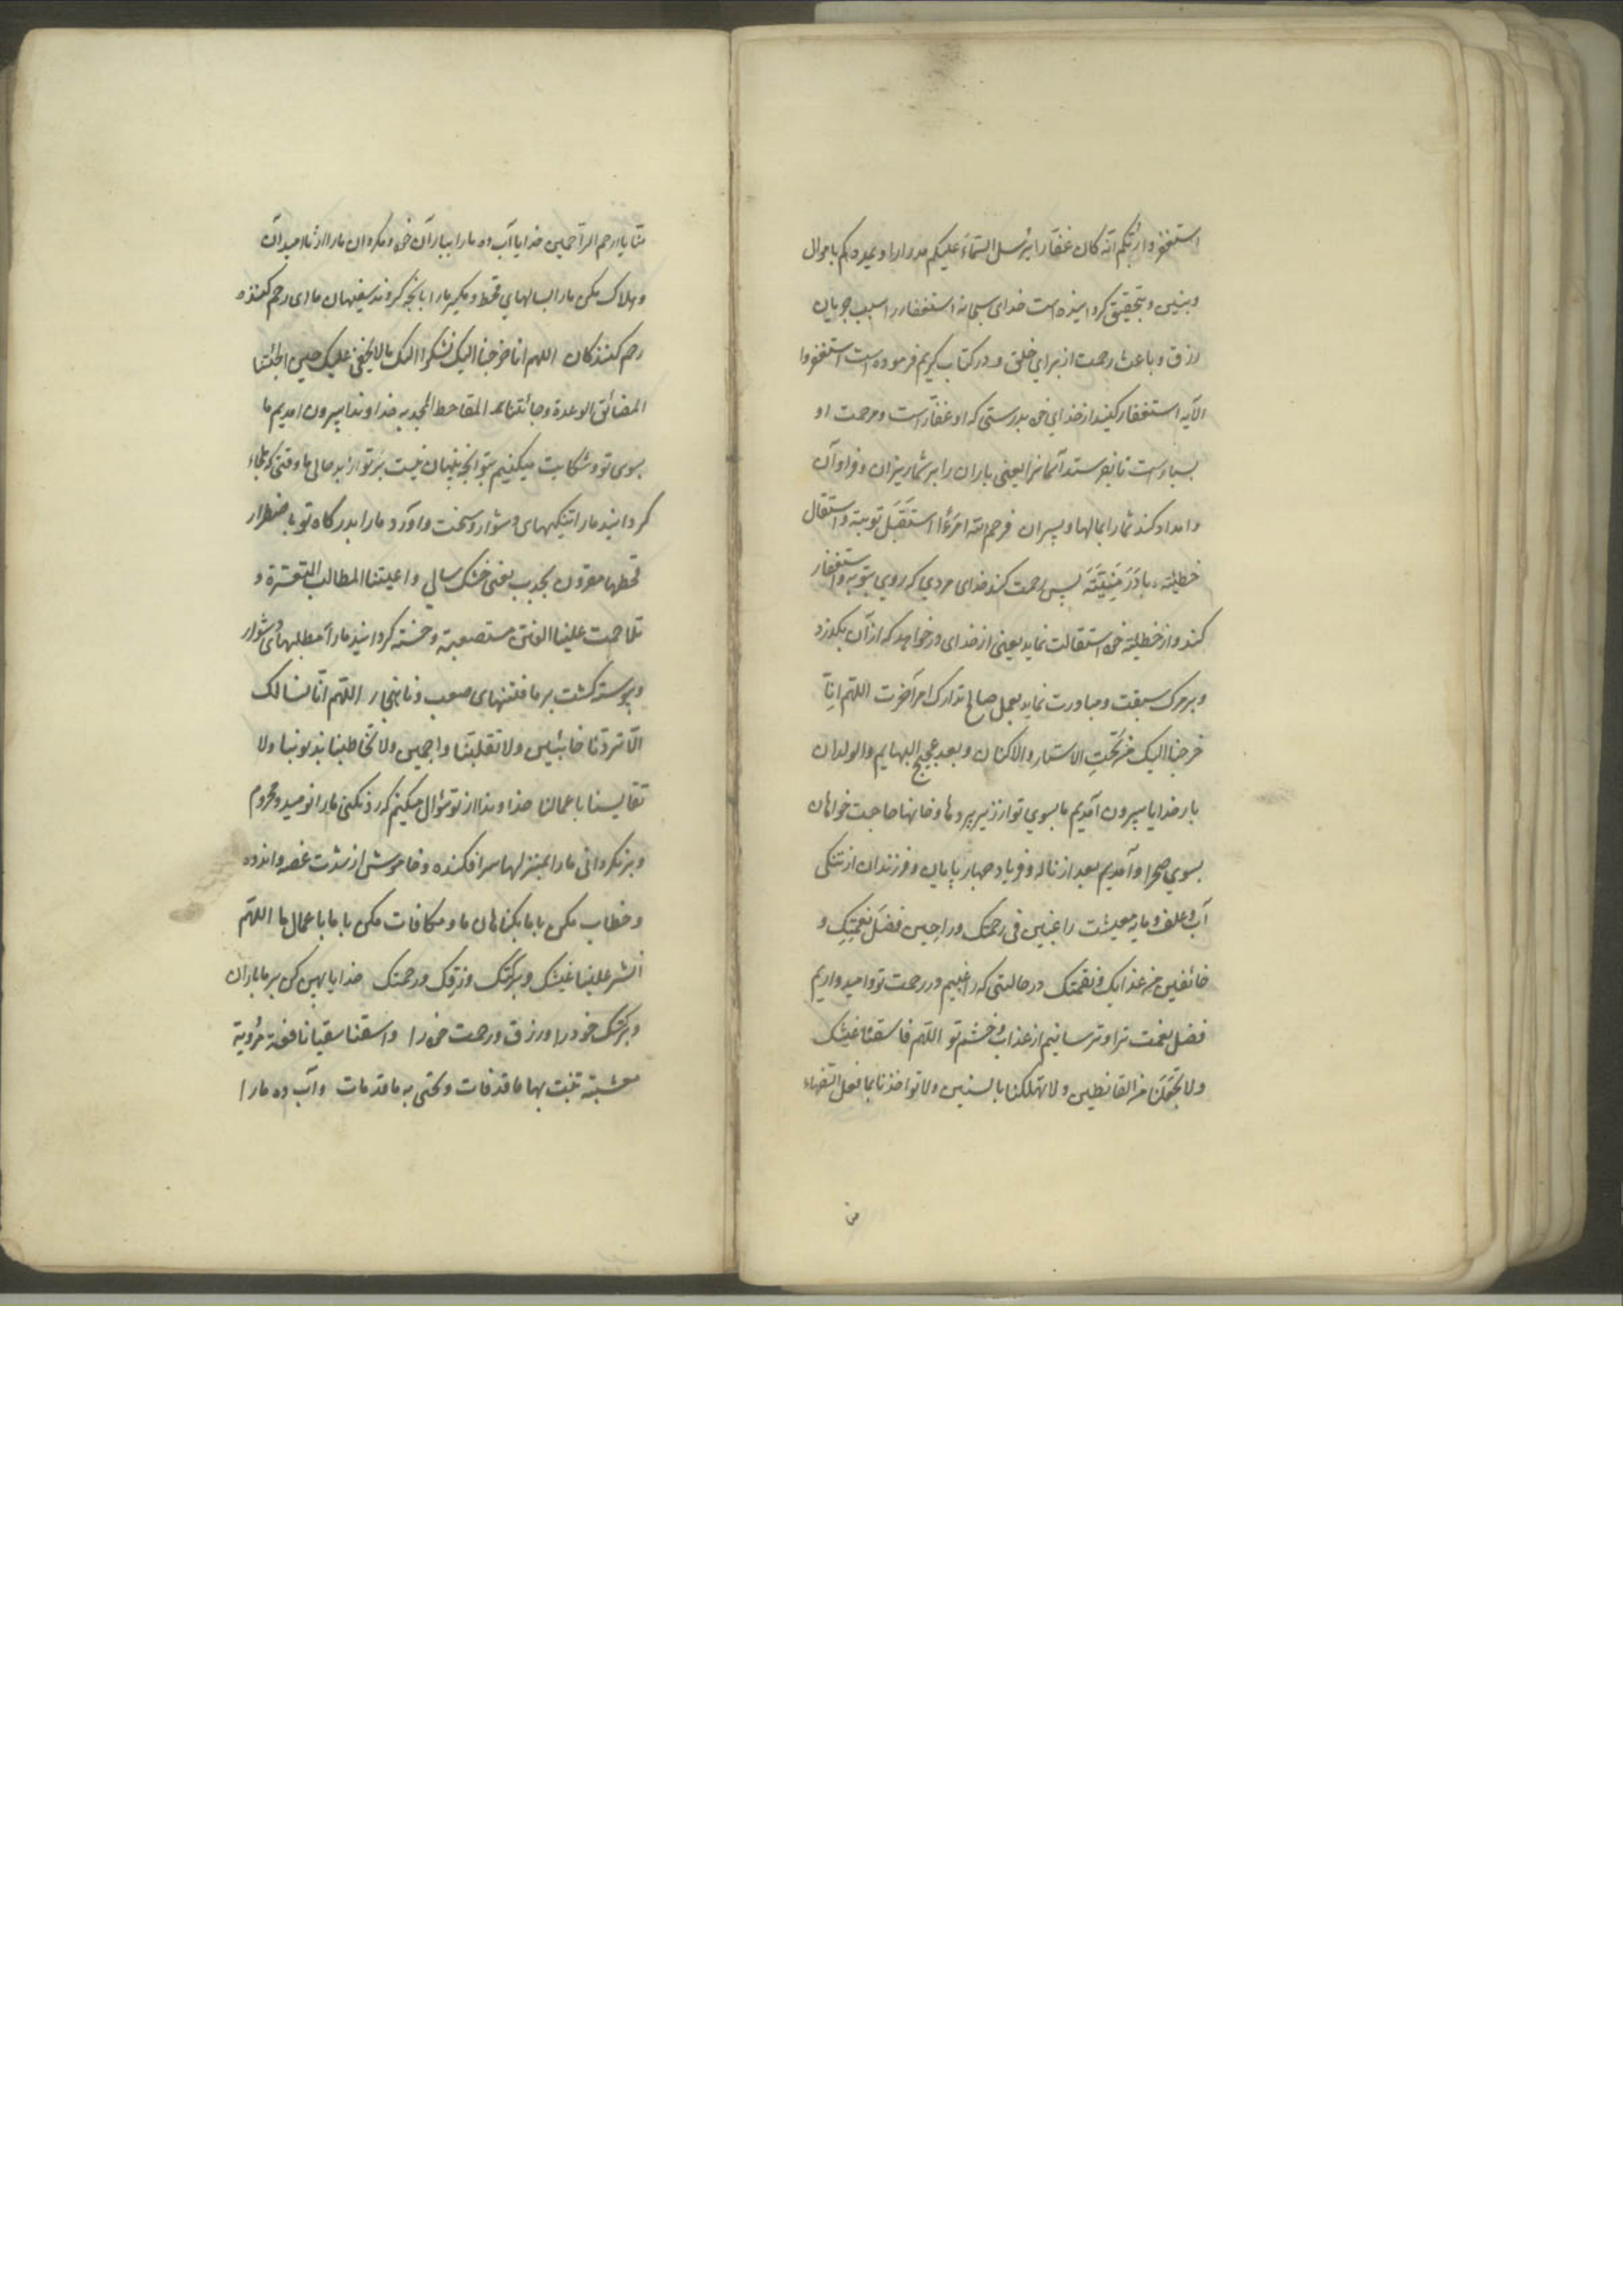 استغفروا ربکم انه کان غفارا یرسل السماء علیکم مدرارا و یمددکم باموال
وبنین و بتحقیق کردانیده است خدای سبحانه استغفار را سبب جریان
رزق و باعث رحمت از برای خلق و در کتاب کریم فرموده است استغفروا
الآیه استغفار کنید از خدای خود بدرستی که او غفار است و مرحمت او
بسیار است تا بفرستد آسمانرا یعنی باران را بر شما ریزان و فراوان
و امداد کند شما را بمالها و پسران فرحم الله امرءا استقبل توبته و استقال
خطیئته و بادر منیته پس رحمت کند خدای مردی که روی بتوبه و استغفار
کند و از خطیئته خود استقالت نماید یعنی از خدای در خواهد که از آن بکذرد
و بر مرک سبقت و مبادرت نماید بعمل صالح و تدارک امر آخرت اللهم انا
خرجنا الیک من تحت الاستار والاکنان و بعد عجیج البهایم والولدان
بار خدایا بیرون آمدیم ما بسوی تو از زیر پردها و خانها حاجت خواهان
بسوی صحرا و آمدیم بعد از ناله و فریاد چهارپایان و فرزندان از تنکی
آب و علف و مایه معیشت راغبین فی رحمتک و راجین فضل نعمتک و
خائفین من عذابک و نقمتک در حالتی که راغبیم در رحمت تو و امیدواریم
فضل نعمت ترا و ترسانیم از عذاب و خشم تو اللهم فاسقنا غیثک
ولا تجعلنا من القانطین ولا تهلکنا بالسنین ولا تواخذنا بما فعل السفهاء
منا یا ارحم الراحمین خدایا آب ده ما را بباران خود و مکردان ما را از ناامیدان
و هلاک مکن ما را بسالهای قحط و مکیر ما را بانچه کردند سفیهان ما ای رحم کننده
رحم کنندکان اللهم انا خرجنا الیک نشکوا الیک ما لا یخفی علیک حین الجئتنا
المضائق الوعرة و جائتنا المقاحط المجدبه خداوندا بیرون امدیم ما
بسوی تو و شکایت میکنیم بتو انچه پنهان نیست بر تو از بد حالی ما وقتی که ملجاء
کردانید ما را تنکیهای دشوار و سخت و اورد ما را بدرکاه تو باضطرار
قحطها مقرون بجدب یعنی خشک سالی و اعیتنا المطالب المتعسرة و
تلاحمت علینا الفتن مستصعبة و خسته کردانید ما را مطلبهای دشوار
و پیوسته کشت بر ما فتنهای صعب و ناهنجار اللهم انا نسالک
الا تردنا خائبین ولا تقلبنا واجمین ولا تخاطبنا بذنوبنا ولا
تقایسنا باعمالنا خداوندا از تو سؤال میکنم که رد نکنی ما را نومید و محروم
و بر نکردانی ما را بمنزلها سر افکنده و خاموش از شدت غصه و اندوه
و خطاب مکن با ما بکناهان ما و مکافات مکن با ما باعمال ما اللهم
انشر علینا غیثک و برکتک و رزقک و رحمتک خدایا پهن کن بر ما باران
و برکتک خود را و رزق و رحمت خود را واسقنا سقیا نافعة مرویة
معشبة تنبت بها ما قد فات و تحیی به ما قد مات و آب ده ما را